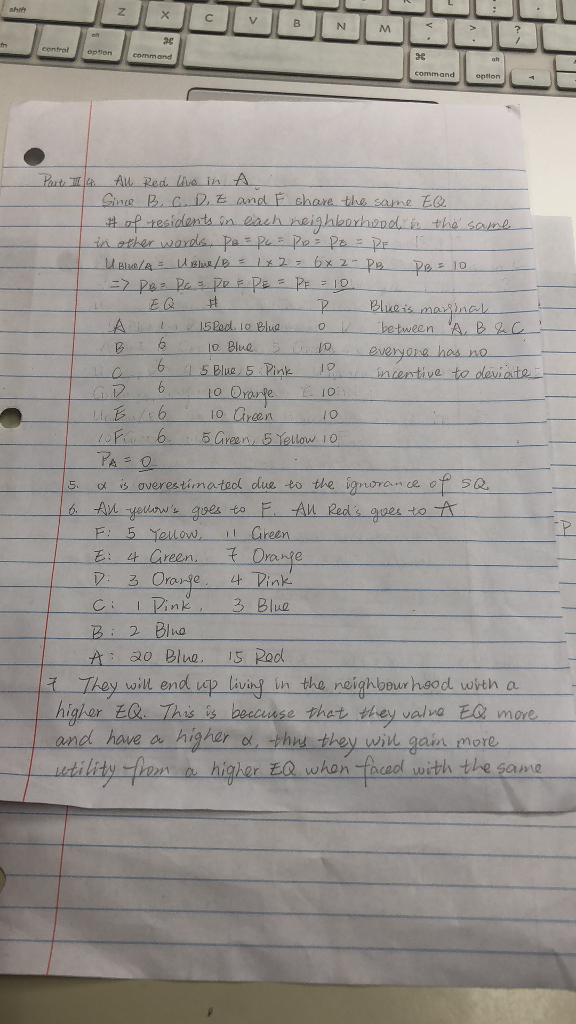 shift
Z X C V B N M < , > . ? /
control
alt option
⌘ command
⌘ command
alt option
Part III 4. All Red live in A.
Since B, C, D, E and F share the same EQ
# of residents in each neighborhood is the same
in other words, PB = PC = PD = PE = PF
UBlue/A = UBlue/B = 1 x 2 = 6 x 2 - PB PB = 10
=> PB = PC = PD = PE = PF = 10
EQ # P Blue is marginal
A 1 15 Red, 10 Blue 0 between A, B & C
B 6 10 Blue 10 everyone has no
C 6 5 Blue, 5 Pink 10 incentive to deviate
D 6 10 Orange 10
E 6 10 Green 10
F 6 5 Green, 5 Yellow 10
PA = 0
5. α is overestimated due to the ignorance of SQ
6. All yellow's goes to F. All Red's goes to A
F: 5 Yellow, 11 Green
E: 4 Green, 7 Orange
D: 3 Orange, 4 Pink
C: 1 Pink, 3 Blue
B: 2 Blue
A: 20 Blue, 15 Red
7 They will end up living in the neighbourhood with a
higher EQ. This is beccuse that they value EQ more
and have a higher α, thus they will gain more
utility from a higher EQ when faced with the same
P